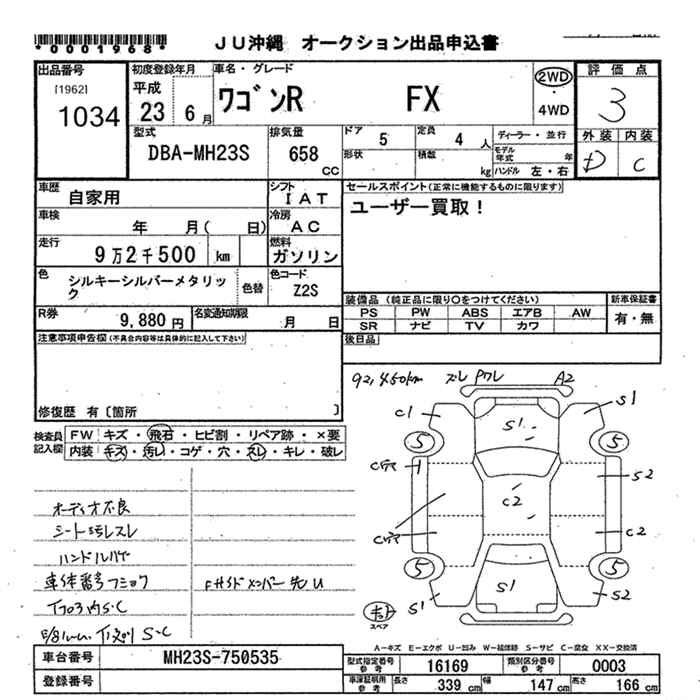 *0001968*
JU沖縄 オークション出品申込書
出品番号
[1962]
1034
初度登録年月
平成
23 6月
車名・グレード
ワゴンR FX
2WD
・
4WD
評価点
3
型式
DBA-MH23S
排気量
658
CC
ドア 5
定員 4 人
形状
積載 kg
ディーラー・並行
モデル年式 年
ハンドル 左・右
外装 内装
D C
車歴
自家用
シフト
IAT
セールスポイント(正常に機能するものに限ります)
ユーザー買取!
車検
年 月( 日)
冷房
AC
走行
9万2千500 km
燃料
ガソリン
色
シルキーシルバーメタリック
色替
色コード
Z2S
装備品 (純正品に限り○をつけてください)
新車保証書
PS PW ABS エアB AW
SR ナビ TV カワ
有・無
R券
9,880 円
名変通知期限
月 日
後日品
注意事項申告欄(不具合内容等は具体的に記入して下さい)
修復歴 有〔箇所 〕
検査員記入欄
FW キズ・飛石・ヒビ割・リペア跡・×要
内装 キズ・汚レ・コゲ・穴・スレ・キレ・破レ
92,450km
A2
C1
S1
S1
5
5
S2
C2
C2
5
5
S1
S1
S2
スペア
オーディオ不良
シート汚レスレ
車体番号
A-キズ E-エクボ U-凹み W-補修跡 S-サビ C-腐食 XX-交換済
車台番号
MH23S-750535
登録番号
型式指定番号
参考
16169
類別区分番号
参考
0003
車庫証明用
参考
長さ 339 cm
幅 147 cm
高さ 166 cm